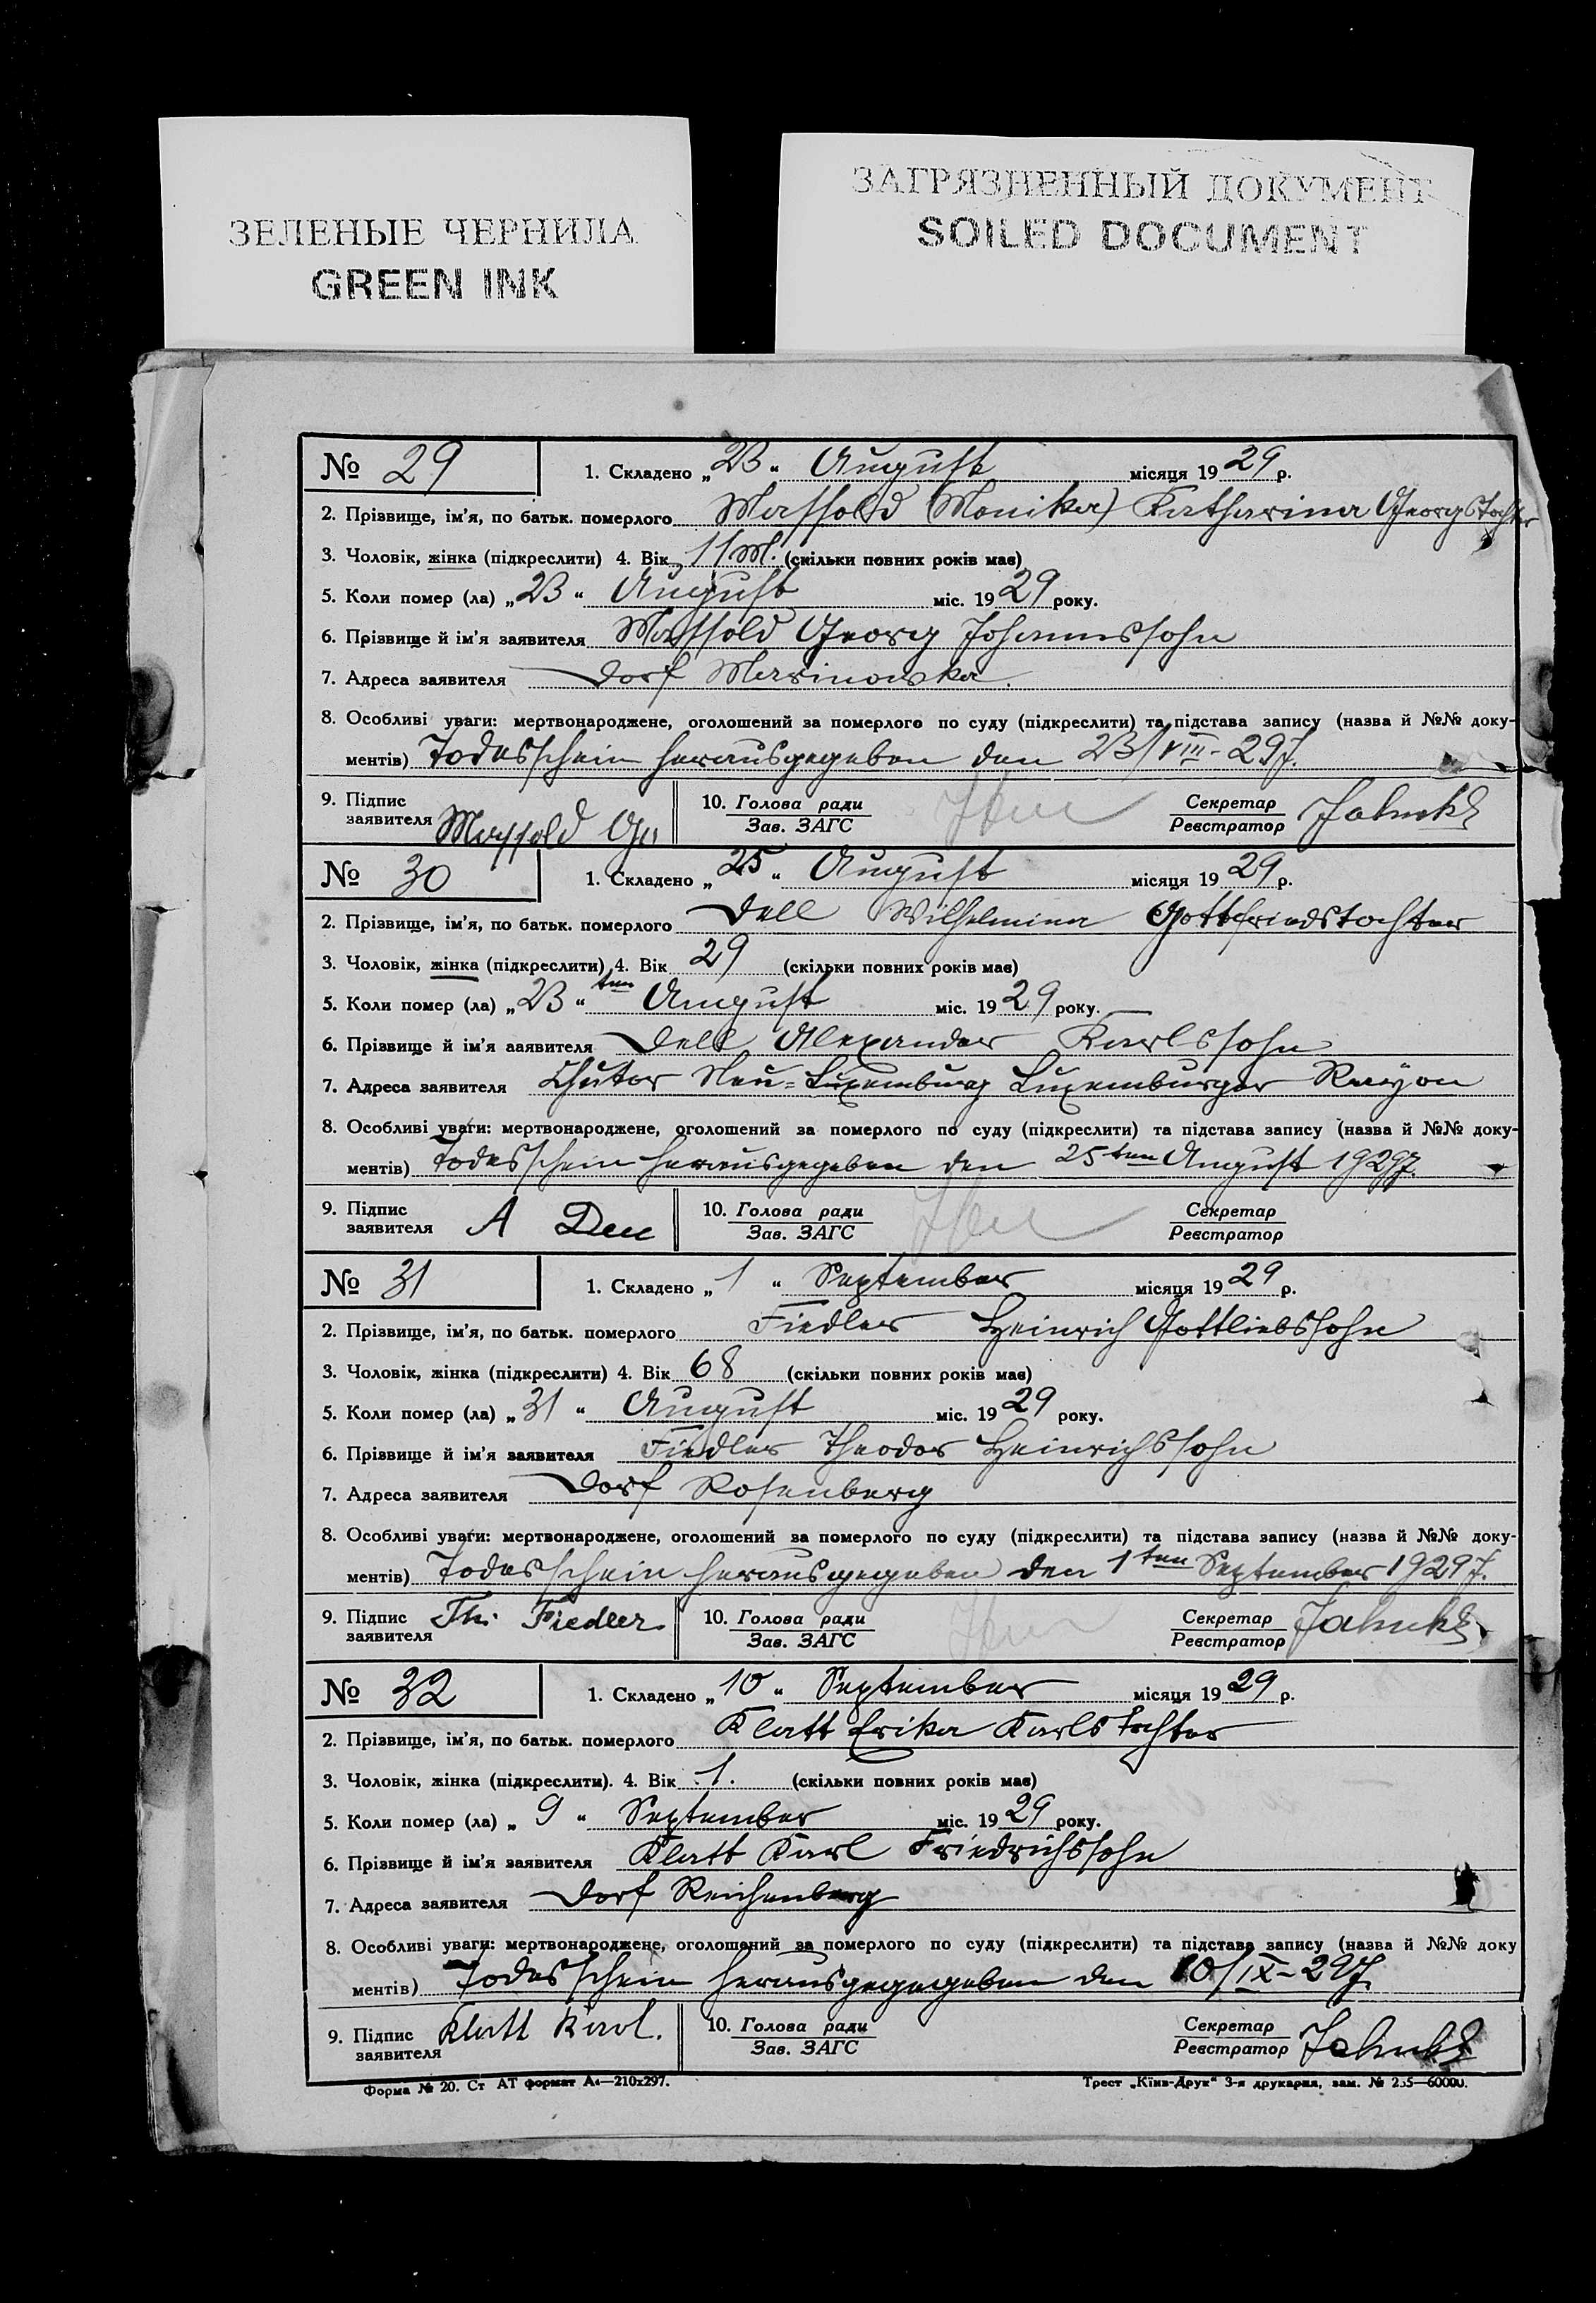 ЗЕЛЕНЫЕ ЧЕРНИЛА
GREEN INK
ЗАГРЯЗНЕННЫЙ ДОКУМЕНТ
SOILED DOCUMENT
№ 29 1. Складено „23“ August місяця 1929 р.
2. Прізвище, ім'я, по батьк. померлого Massold (Monika) Katharina Georgstochter
3. Чоловік, жінка (підкреслити) 4. Вік 11 M. (скільки повних років має)
5. Коли помер (ла) „23“ August міс. 1929 року.
6. Прізвище й ім'я заявителя Massold Georg Johannssohn
7. Адреса заявителя Dorf Marinowka.
8. Особливі уваги: мертвонароджене, оголошений за померлого по суду (підкреслити) та підстава запису (назва й №№ доку-
ментів) Todesschein herausgegeben den 23/VIII-29 J.
9. Підпис заявителя Massold Ge 10. Голова ради Зав. ЗАГС Секретар Реєстратор Jahnke
№ 30 1. Складено „25“ August місяця 1929 р.
2. Прізвище, ім'я, по батьк. померлого Dell Wilhelmina Gottfriedstochter
3. Чоловік, жінка (підкреслити) 4. Вік 29 (скільки повних років має)
5. Коли помер (ла) „23“ ten August міс. 1929 року.
6. Прізвище й ім'я заявителя Dell Alexander Karlssohn
7. Адреса заявителя Chutor Neu-Luxemburg Luxemburger Rayon
8. Особливі уваги: мертвонароджене, оголошений за померлого по суду (підкреслити) та підстава запису (назва й №№ доку-
ментів) Todesschein herausgegeben den 25ten August 1929 J.
9. Підпис заявителя A Делл 10. Голова ради Зав. ЗАГС Секретар Реєстратор
№ 31 1. Складено „1“ September місяця 1929 р.
2. Прізвище, ім'я, по батьк. померлого Fiedler Heinrich Gottliebssohn
3. Чоловік, жінка (підкреслити) 4. Вік 68 (скільки повних років має)
5. Коли помер (ла) „31“ August міс. 1929 року.
6. Прізвище й ім'я заявителя Fiedler Theodor Heinrichssohn
7. Адреса заявителя Dorf Rosenberg
8. Особливі уваги: мертвонароджене, оголошений за померлого по суду (підкреслити) та підстава запису (назва й №№ доку-
ментів) Todesschein herausgegeben den 1ten September 1929 J.
9. Підпис заявителя Th. Fiedler. 10. Голова ради Зав. ЗАГС Секретар Реєстратор Jahnke
№ 32 1. Складено „10“ September місяця 1929 р.
2. Прізвище, ім'я, по батьк. померлого Klatt Erika Karlstochter
3. Чоловік, жінка (підкреслити). 4. Вік 1. (скільки повних років має)
5. Коли помер (ла) „9“ September міс. 1929 року.
6. Прізвище й ім'я заявителя Klatt Karl Friedrichssohn
7. Адреса заявителя Dorf Reichenberg
8. Особливі уваги: мертвонароджене, оголошений за померлого по суду (підкреслити) та підстава запису (назва й №№ доку
ментів) Todesschein herausgegegeben den 10/IX-29 J.
9. Підпис заявителя Klatt Karl. 10. Голова ради Зав. ЗАГС Секретар Реєстратор Jahnke
Форма № 20. Ст АТ формат А4—210х297. Трест „Київ-Друк“ 3-я друкарня, зам. № 235—60000.